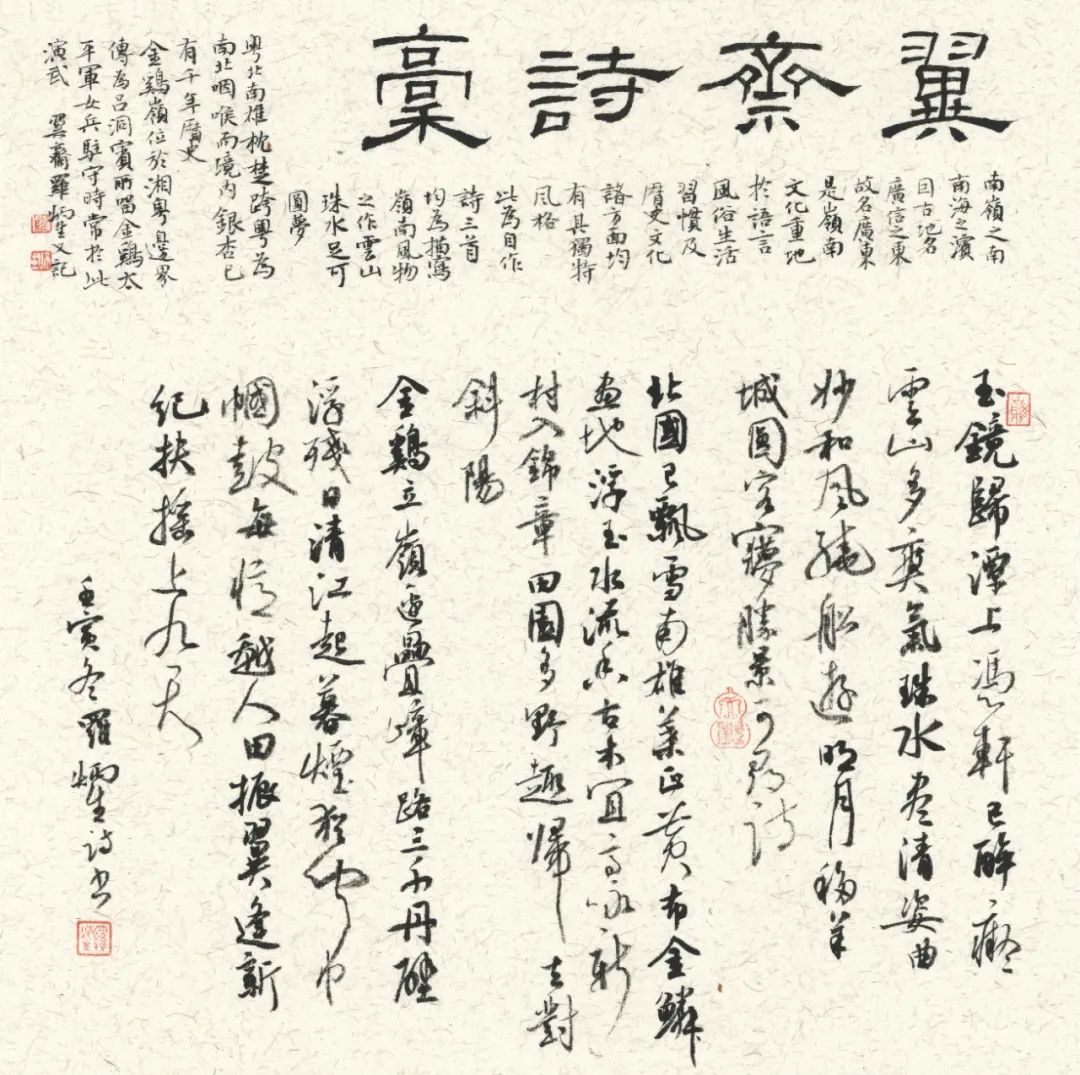 翼齋詩稾
南嶺之南
南海之濱
因古地名
廣信之東
故名廣東
是嶺南
文化重地
於語言
風俗生活
習慣及
曆史文化
諸方面均
有其獨特
風格
此為自作
詩三首
均為描寫
嶺南風物
之作雲山
珠水足可
圓夢
粵北南雄枕楚跨粵為
南北咽喉而境內銀杏已
有千年曆史
金鷄嶺位於湘粵邊界
傳為呂洞賓所留金鷄太
平軍女兵駐守時常於此
演武 翼齋羅炳生又記
玉鏡歸潭上憑軒已醉癡
雲山多爽氣珠水盡清姿曲
妙和風繞船遊明月移羊
城圓客夢勝景可為詩
北國已飄雪南雄葉正黃布金鱗
畫地浮玉水流香古木宜高詠新
村入錦章田園多野趣歸去對
斜陽
金鷄立嶺邊疊嶂路三千丹壁
浮殘日清江起暮煙猶聞巾
幗鼓每憶越人田振翼逢新
紀扶搖上九天
壬寅冬羅炳生詩書